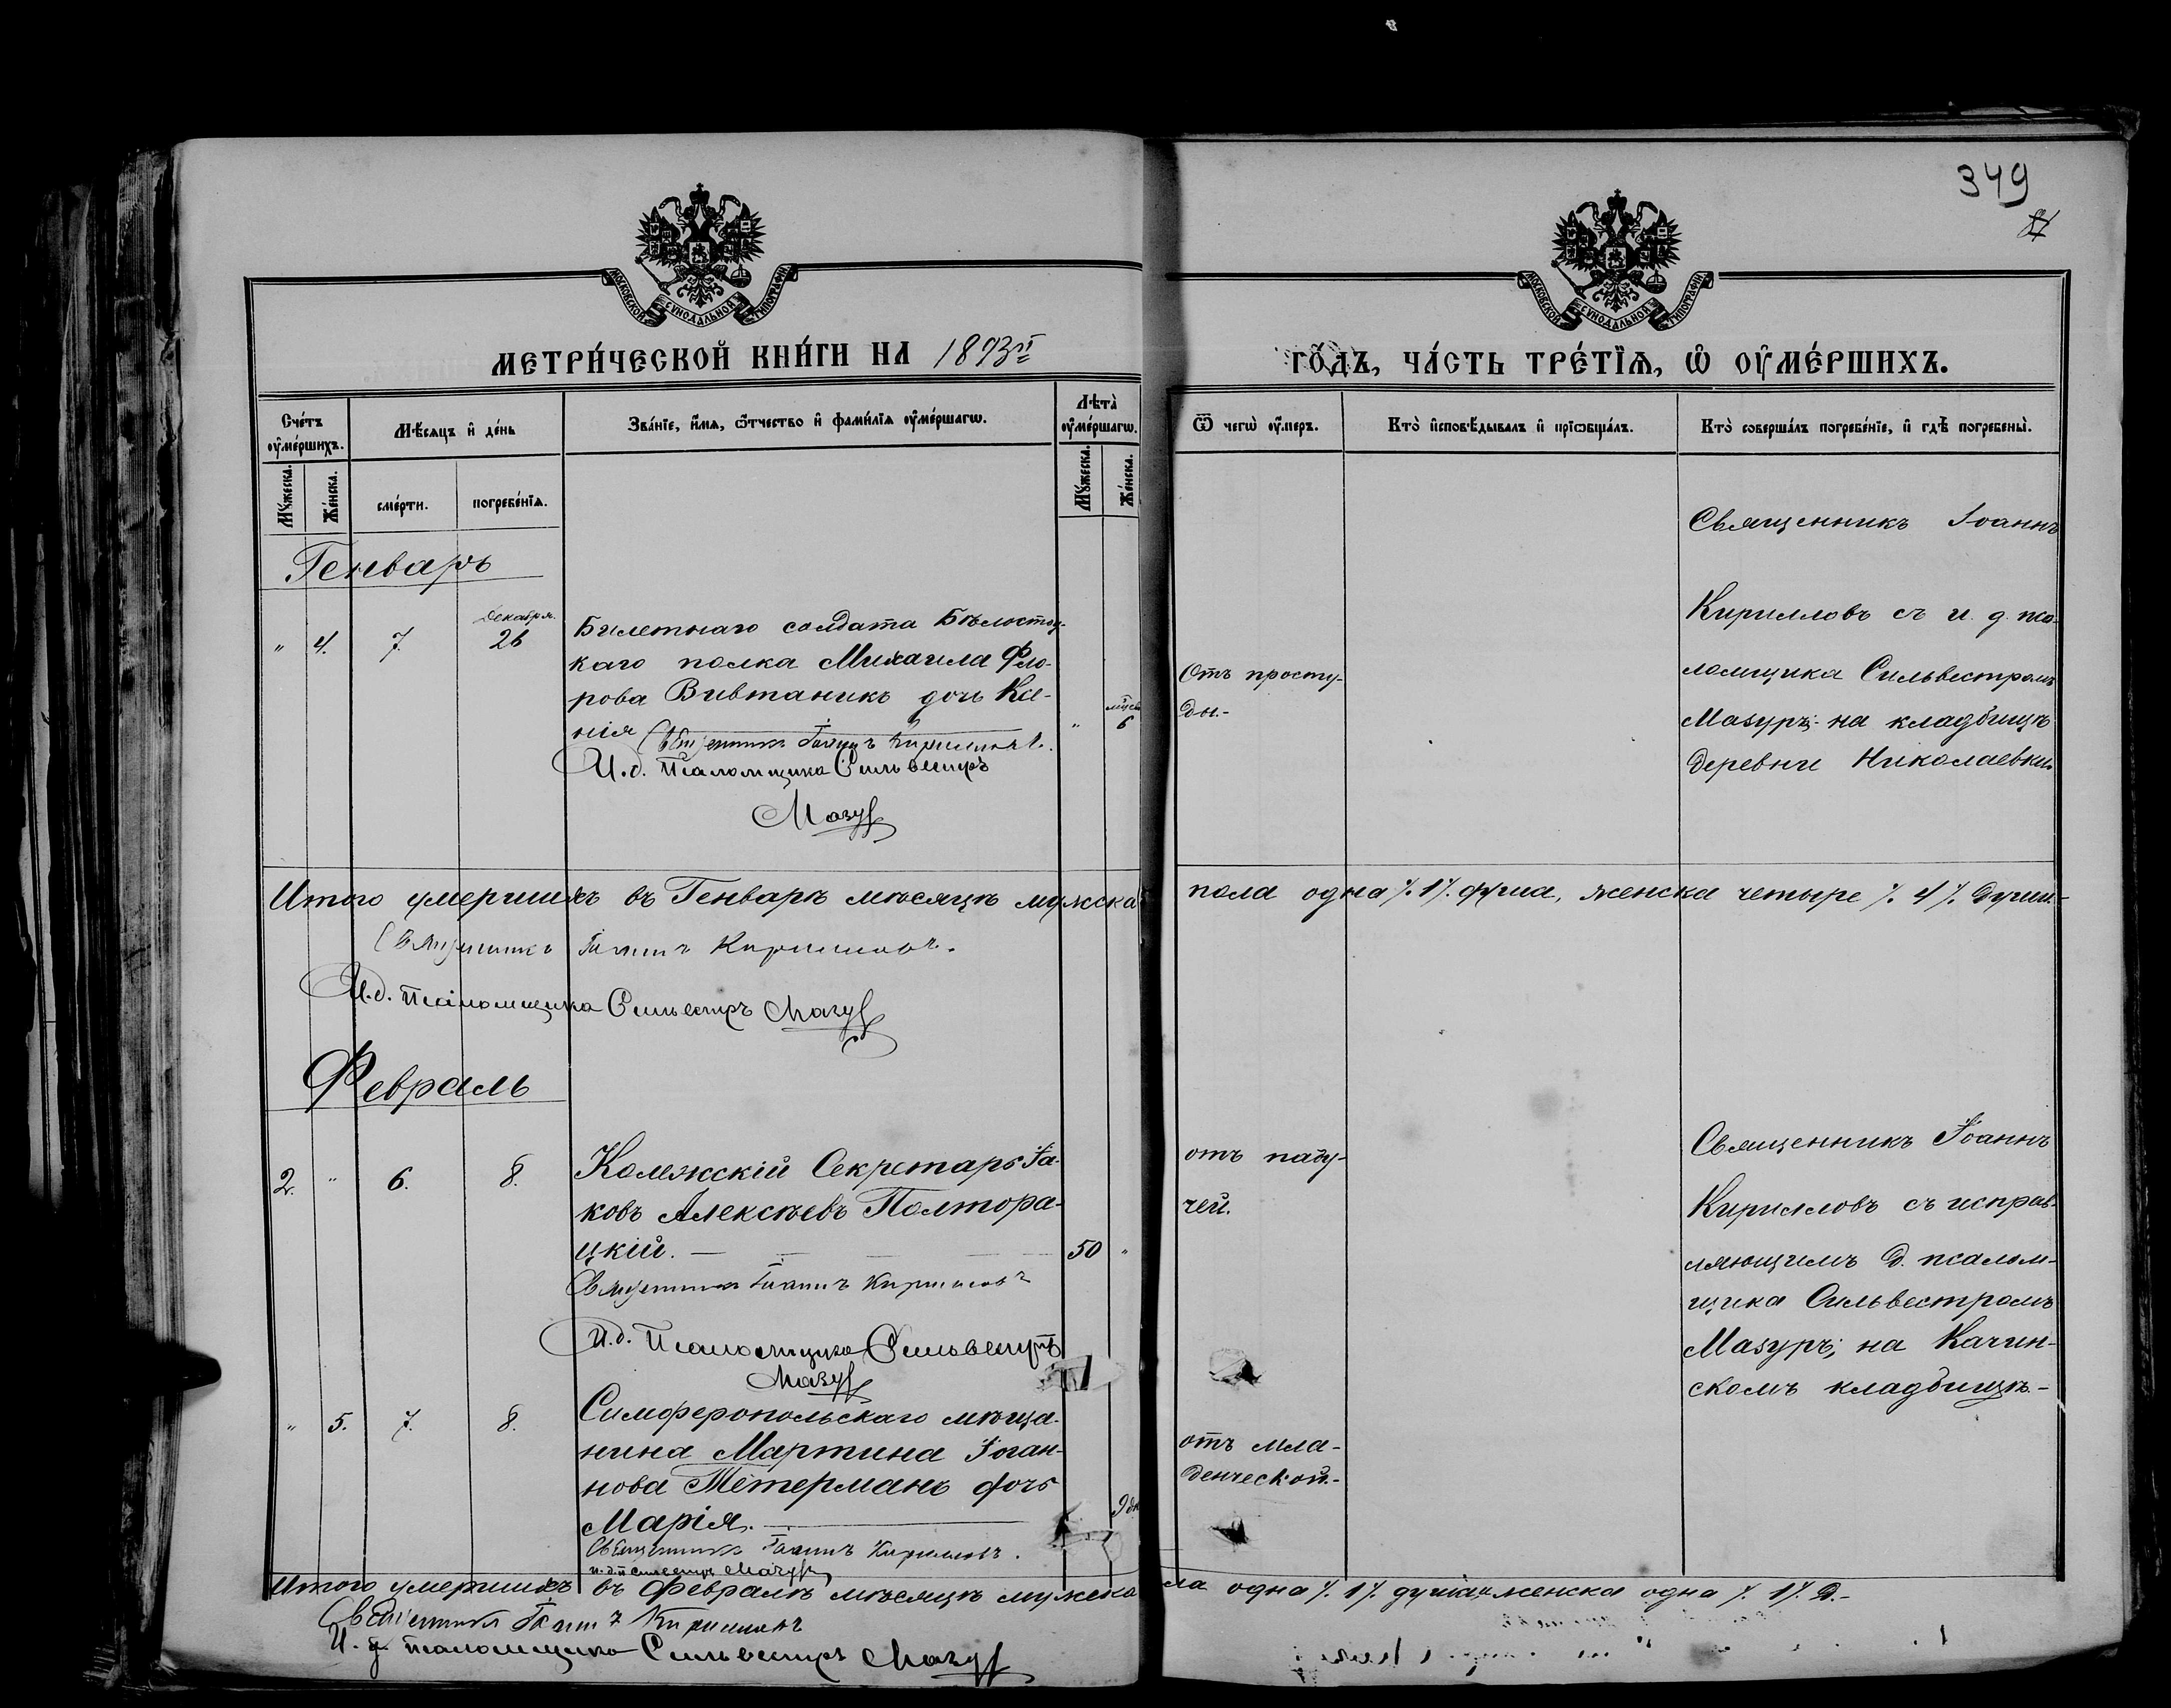 349
81
МОСКОВСКОЙ СѴНОДАЛЬНОЙ ТИПОГРАФІИ
МОСКОВСКОЙ СѴНОДАЛЬНОЙ ТИПОГРАФІИ
МЕТРИ́ЧЕСКОЙ КНИ́ГИ НА 1893й
ГО́ДЪ, ЧА́СТЬ ТРЕ́ТЇѦ, Ѡ҆ ОУ҆МЕ́РШИХЪ.
Сче́тъ оу҆ме́ршихъ.
Мѣ́сяцъ и҆ де́нь
Зва́нїе, и҆́мѧ, ѻ҆́тчество и҆ фами́лїѧ оу҆ме́ршагѡ.
Лѣта̀ оу҆ме́ршагѡ.
Ѿ чегѡ̀ оу҆́меръ.
Кто̀ и҆сповѣ́дывалъ и҆ прїѡбща́лъ.
Кто̀ соверша́лъ погребе́нїе, и҆ гдѣ̀ погребены̀.
Мꙋ́жеска.
Же́нска.
сме́рти.
погребе́нїѧ.
Мꙋ́жеска.
Же́нска.
Генварь
" 4. 7. Декабря. 26
Билетнаго солдата Бѣлосток-
каго полка Михаила Фло-
рова Вивтаникъ дочь Ке-
нія
" 6
Священникъ Іоаннъ Кирилловъ.
И.д. Псаломщика Сильвестръ
Мазуръ
Отъ просту-
ды.-
Священникъ Іоаннъ
Кирилловъ съ и. д. пса-
ломщика Сильвестромъ
Мазуръ; на кладбищѣ
деревни Николаевки.
Итого умершихъ въ Генварѣ мѣсяцѣ мужска пола одна /. 1 /. душа, женска четыре /. 4 /. души.-
Священникъ Іоаннъ Кирилловъ.
И.д. Псаломщика Сильвестръ Мазуръ
Февраль
2. " 6. 8.
Колежскій Секретарь Іа-
ковъ Алексѣевъ Полтора-
цкій. — 50 "
Священникъ Іоаннъ Кирилловъ
И.д. Псаломщика Сильвестръ
Мазуръ
отъ
чей.
Священникъ Іоаннъ
Кирилловъ съ исправ-
ляющимъ д. псалом-
щика Сильвестромъ
Мазуръ; на Качин-
скомъ кладбищѣ.-
" 5. 7. 8.
Симферопольскаго мѣща-
нина Мартина Іоган-
нова Тетерманъ дочь
Марія. — 9 дн
Священникъ Іоаннъ Кирилловъ.
и.д.п Сильвестръ Мазуръ
отъ мла-
денческой.-
Итого умершихъ въ Февралѣ мѣсяцѣ мужска ла одна /. 1 /. душа, женска одна /. 1 /. д.-
Священникъ Іоаннъ Кирилловъ
И. д. псаломщика Сильвестръ Мазуръ